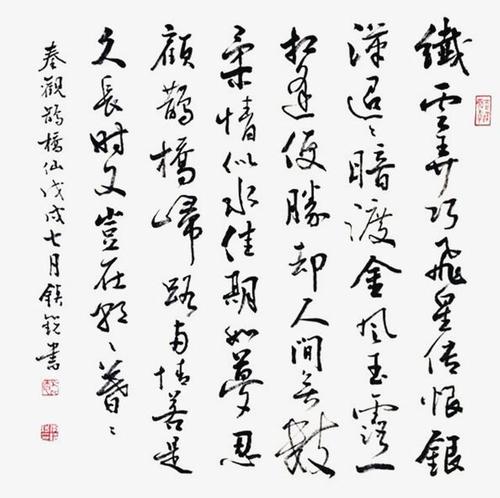 纖雲弄巧飛星传恨銀
漢迢々暗渡金風玉露一
相逢便勝却人間無數
柔情似水佳期如夢忍
顧鵲橋歸路兩情若是
久長時又豈在朝々暮々
秦觀鵲橋仙戊戌七月書